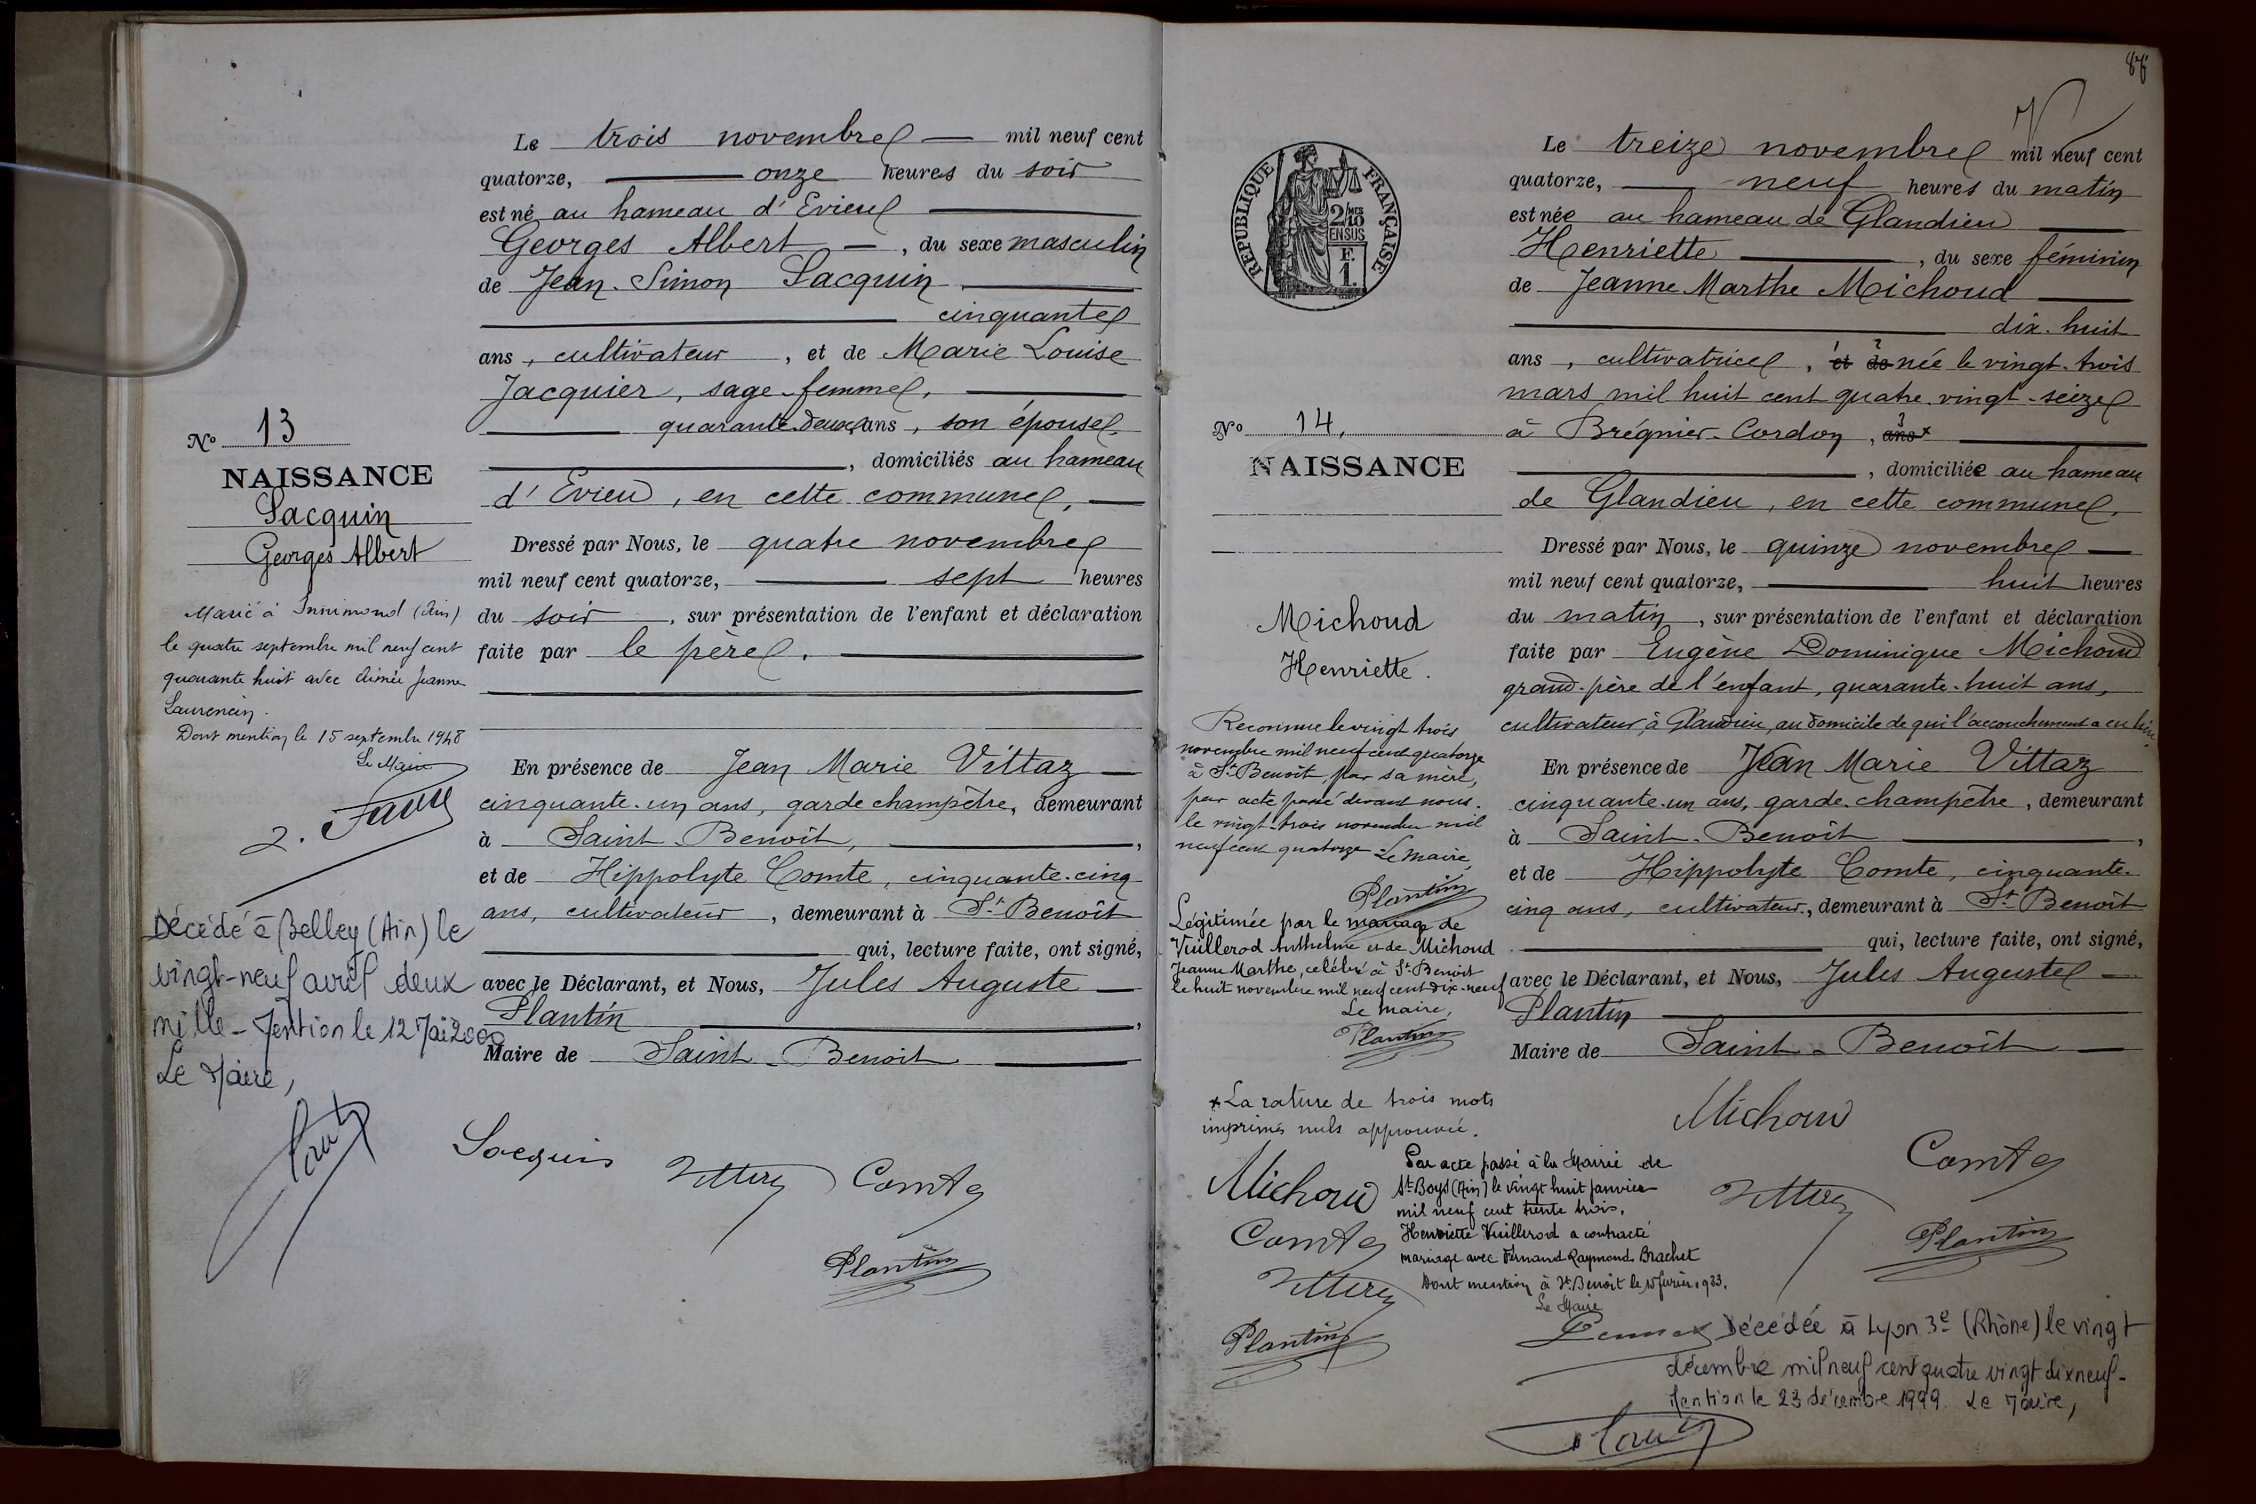 Le trois novembre mil neuf cent
quatorze, onze heures du soir
est né au hameau d'Evieu
Georges Albert, du sexe masculin
de Jean-Simon Sacquin
cinquante
ans, cultivateur, et de Marie Louise
Jacquier, sage-femme,
quarante-deux ans, son épouse,
, domiciliés au hameau
d'Evieu, en cette commune,
Dressé par Nous, le quatre novembre
mil neuf cent quatorze, sept heures
du soir, sur présentation de l'enfant et déclaration
faite par le père.
En présence de Jean Marie Vittaz
cinquante-un ans, garde champêtre, demeurant
à Saint-Benoît,
et de Hippolyte Comte, cinquante-cinq
ans, cultivateur, demeurant à St Benoît
qui, lecture faite, ont signé,
avec le Déclarant, et Nous, Jules Auguste
Plantin,
Maire de Saint-Benoit
Sacquin
Comte
Plantin
No 13
NAISSANCE
Sacquin
Georges Albert
Marié à Innimond (Ain)
le quatre septembre mil neuf cent
quarante huit avec Aimée Jeanne
Laurencin.
Dont mention le 15 septembre 1948
Le Maire
Décédé à Belley (Ain) le
vingt-neuf avril deux
mille - Mention le 12 Mai 2000
Le Maire,
87
REPUBLIQUE FRANÇAISE
2/10 MES
EN SUS
F.
1.
Le treize novembre mil neuf cent
quatorze, neuf heures du matin
est née au hameau de Glandieu
Henriette, du sexe féminin
de Jeanne Marthe Michoud
dix-huit
ans, cultivatrice, et de née le vingt-trois
mars mil huit cent quatre-vingt-seize
à Brégnier-Cordon, ans x
, domiciliée au hameau
de Glandieu, en cette commune,
Dressé par Nous, le quinze novembre
mil neuf cent quatorze, huit heures
du matin, sur présentation de l'enfant et déclaration
faite par Eugène Dominique Michoud
grand-père de l'enfant, quarante-huit ans,
cultivateur, à Glandieu, au domicile de qui l'accouchement a eu lieu.
En présence de Jean Marie Vittaz
cinquante-un ans, garde-champêtre, demeurant
à Saint-Benoît,
et de Hippolyte Comte, cinquante-
cinq ans, cultivateur, demeurant à St Benoît
qui, lecture faite, ont signé,
avec le Déclarant, et Nous, Jules Auguste
Plantin
Maire de Saint-Benoît
Michoud
Comte
Plantin
No 14,
NAISSANCE
Michoud
Henriette.
Reconnue le vingt trois
novembre mil neuf cent quatorze
à St Benoît, par sa mère,
par acte passé devant nous.
le vingt-trois novembre mil
neuf cent quatorze. Le Maire,
Plantin
Légitimée par le mariage de
Vuillerod Anthelme et de Michoud
Jeanne Marthe, célébré à St Benoît
le huit novembre mil neuf cent dix-neuf
Le Maire,
Plantin
x La rature de trois mots
imprimés nuls approuvée.
Michoud
Comte
Plantin
Par acte passé à la Mairie de
St Boys (Ain) le vingt huit janvier
mil neuf cent trente trois,
Henriette Vuillerod a contracté
mariage avec Fernand Raymond Brachet
Dont mention à St Benoît le février 1933.
Le Maire
Décédée à Lyon 3e (Rhône) le vingt
décembre mil neuf cent quatre vingt dix neuf -
Mention le 23 décembre 1999. Le Maire,